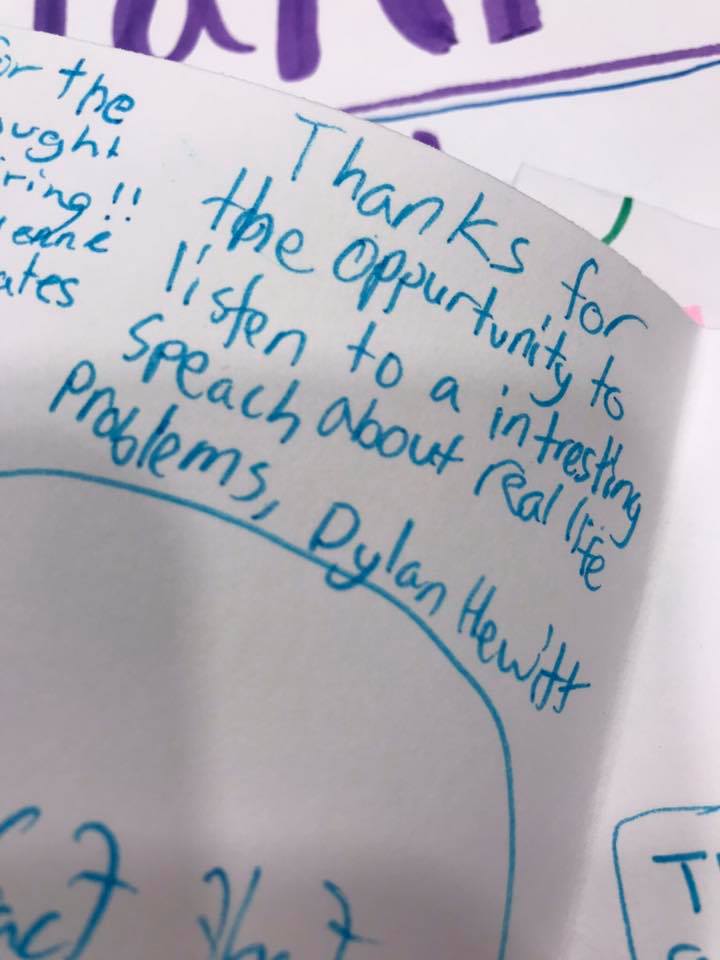 for the
ught
ring!!
ates
Thanks for
the oppurtunity to
listen to a intresting
speach about real life
problems, Dylan Hewitt
that